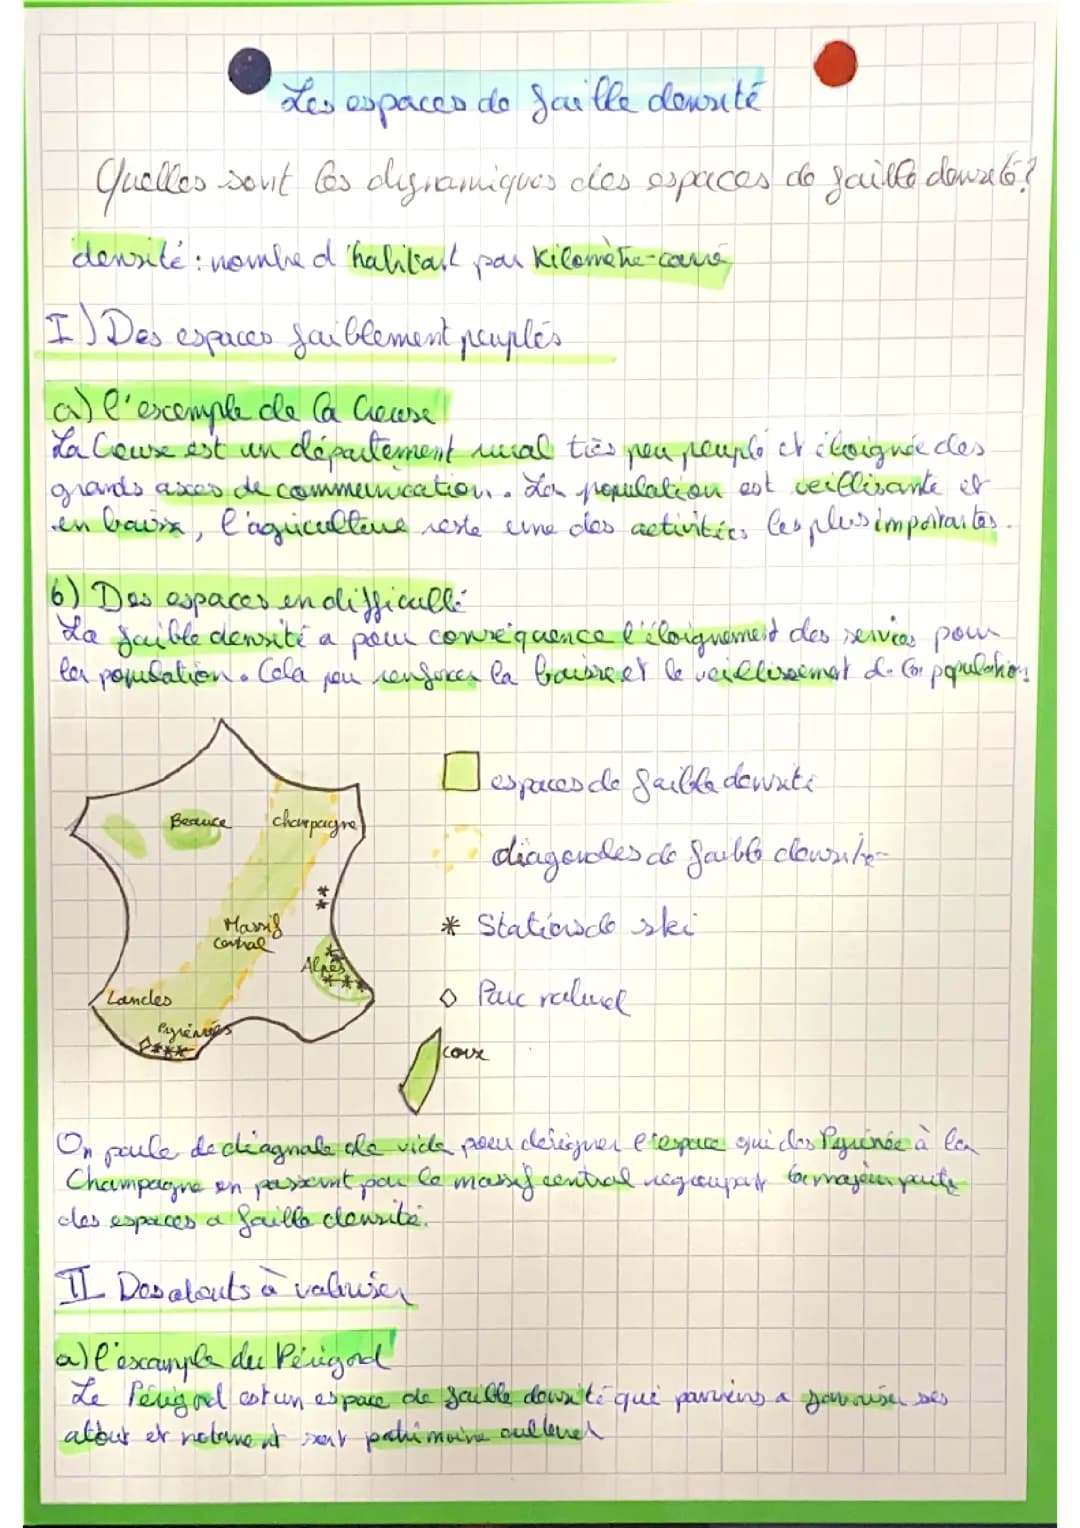 Les espaces de faible densité
Quelles sont les dynamiques des espaces de faible densité?
densité : nombre d'habitant par Kilomètre-carré
I) Des espaces faiblement peuplés
a) l'exemple de la Creuse
La Creuse est un département rural très peu peuplé et éloignée des
grands axes de communication. La population est veillisante et
en baisse, l'agriculture reste une des activités les plus importantes.
b) Des espaces en difficulté
La faible densité a pour conséquence l'éloignement des services pour
la population. Cela peu renforcer la baisse et le veillissement de la population
Beauce
champagne
Massif
central
Alpes
Landes
Pyrénées
espaces de faible densité
diagonales de faible densité
* Stations de ski
◊ Parc naturel
corse
On parle de diagnale de vide pour désigner l'espace qui des Pyrénée à la
Champagne en passant par le massif central regroupant la majeur partie
des espaces a faible densité.
II Des atouts à valoriser
a) l'example du Périgord
Le Périgord est un espace de faible densité qui parviens a ses
atout et notament sont patrimoine culturel